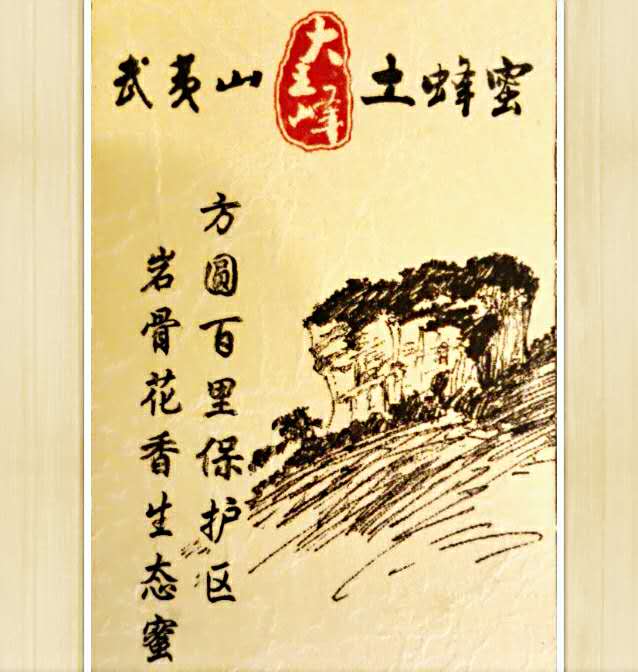 武夷山 大王峰 土蜂蜜
方圆百里保护区
岩骨花香生态蜜